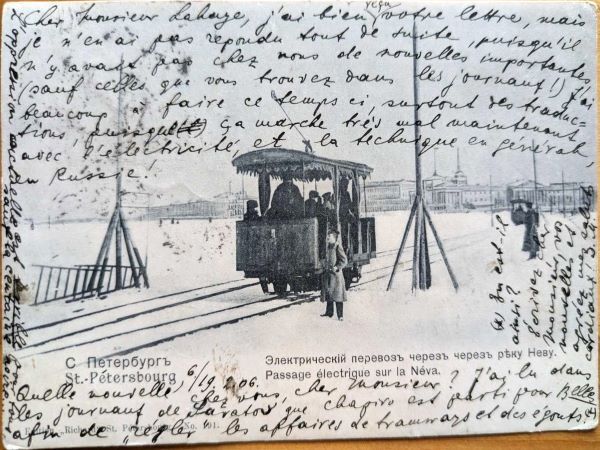 Cher Monsieur Lahaye, j'ai bien reçu votre lettre, mais
je n'en ai pas répondu tout de suite, puisqu'il
n'y avait pas chez nous de nouvelles importantes
(sauf celles que vous trouvez dans les journaux!) J'ai
beaucoup à faire ce temps ci, surtout des traduc-
tions, puisque ça marche très mal maintenant
avec l'électricité, et la technique en général,
en Russie!
(*) En est-il
ainsi?
Ecrivez cher
Monsieur, vos
nouvelles et
С. Петербургъ
St.-Pétersbourg
6/19 2 06.
Электрическій перевозъ черезъ черезъ рѣку Неву.
Passage électrique sur la Néva.
Quelle nouvelle chez vous, cher Monsieur? J'ai lu dans
les journaux de Saratow que Chapiro est parti pour Belle
afin de régler les affaires de tramways et des égouts! (*)
"Richard" St. No. 191.